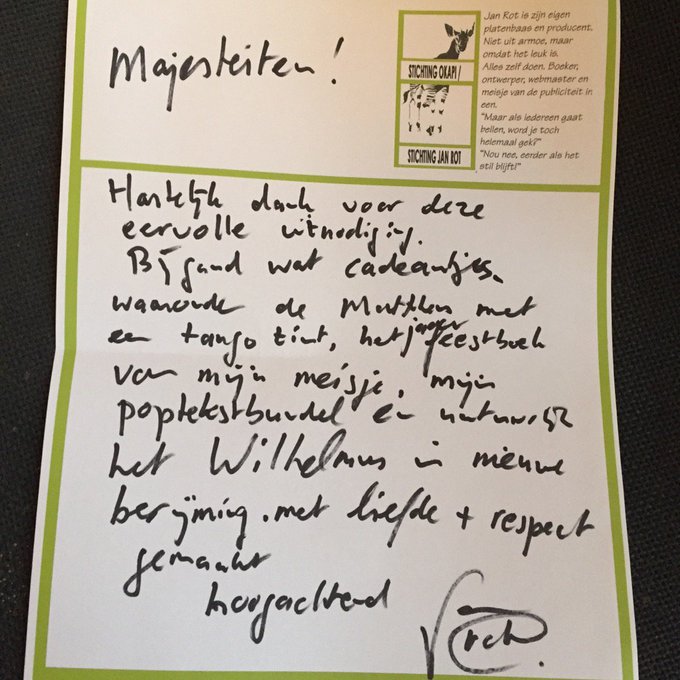 Majesteiten!
STICHTING OKAPI /
STICHTING JAN ROT
Jan Rot is zijn eigen
platenbaas en producent.
Niet uit armoe, maar
omdat het leuk is.
Alles zelf doen. Boeker,
ontwerper, webmaster en
meisje van de publiciteit in
een.
"Maar als iedereen gaat
bellen, word je toch
helemaal gek?"
"Nou nee, eerder als het
stil blijft!"
Hartelijk dank voor deze
eervolle uitnodiging.
Bijgaand wat cadeautjes,
waaronder de Matthäus met
een tango tint, het
feestboek
van mijn meisje, mijn
poptekstbundel en natuurlijk
het Wilhelmus in nieuwe
berijming. met liefde + respect
gemaakt
hoogachtend